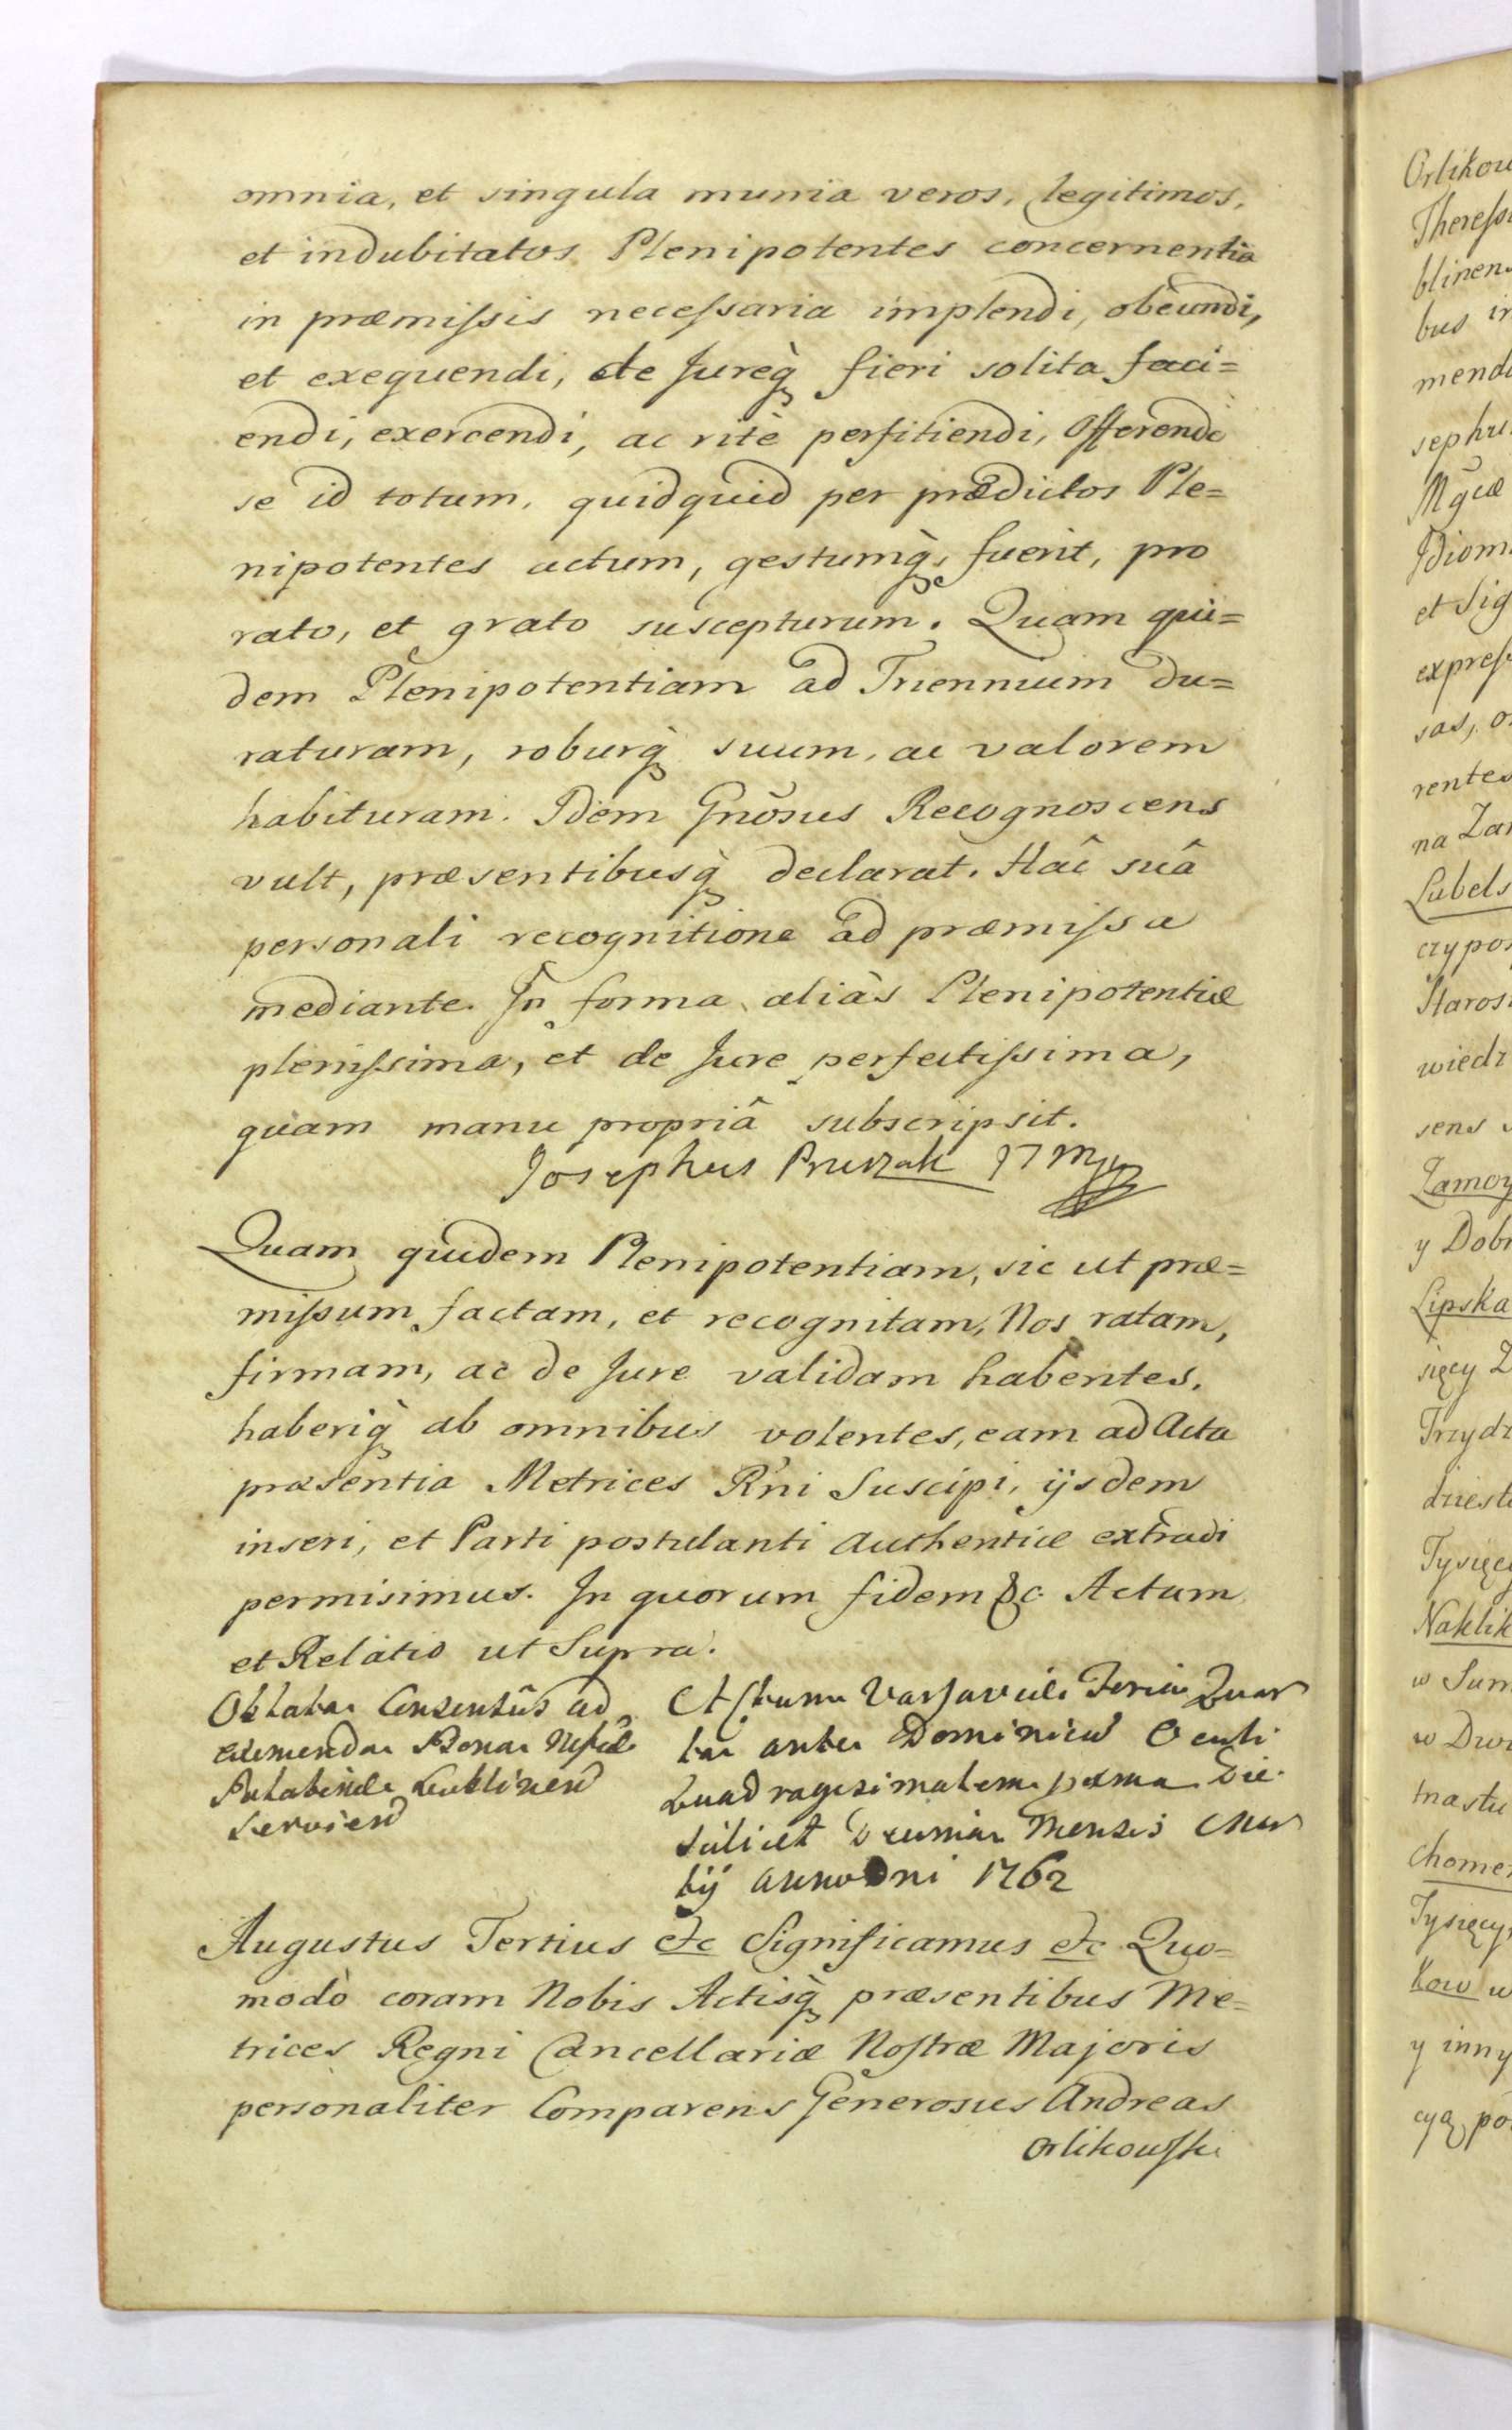 omnia, et singula munia veros, legitimos,
et indubitatos Plenipotentes concernentia
in præmissis necessaria implendi, obeundi,
et exequendi, de Jureq̀ fieri solita faci=
endi, exercendi, ac ritè perfitiendi, Offerendo
se id totum, quidquid per prædictos Ple=
nipotentes actum, gestumq̀, fuerit, pro
rato, et grato suscepturum. Quam qui=
dem Plenipotentiam ad Triennium du=
raturam, roburq̀ suum, ac valorem
habituram. Idem Gnosus Recognoscens
vult, præsentibusq̀ declarat. Hac suâ
personali recognitione ad præmissa
mediante. In forma aliàs Plenipotentiæ
plenissima, et de Jure perfectissima,
quam manu propriâ subscripsit.
Josephus Pruszak
Quam quidem Plenipotentiam, sic ut præ=
missum factam, et recognitam, Nos ratam,
firmam, ac de Jure validam habentes,
haberiq̀ ab omnibus volentes, eam ad Acta
præsentia Metrices R'ni Suscipi, ijsdem
inseri, et Parti postulanti Authentice extradi
permisimus. In quorum fidem &c. Actum
et Relatio ut Supra.
Oblata Consensûs ad
eximenda Bona
Palatin Lublinen
Servien
Actum Varsaviæ Feria Quar
ta ante Dominicā Oculi
Quadragesimalem Die
scilicet Decima Mensis Mar
tij Anno Dni 1762
Augustus Tertius etc Significamus etc Quo=
modò coram Nobis Actisq̀ præsentibus Me=
trices Regni Cancellariæ Nostræ Majoris
personaliter Comparens Generosus Andreas
Orlikowski
Orlikow
Theress
blinen
bus in
menda
sephu
Mgcæ
Idiom
et Sig
express
sas, o
rentes
na Za
Lubels
czypos
Staros
wiedz
sens
Zamoy
y Dobr
Lipska
sięcy Z
Trzydz
dziest
Tysięc
Naklik
w Sum
w Dwu
nastu
Chome
Tysięcy
kow w
y inny
cyą po